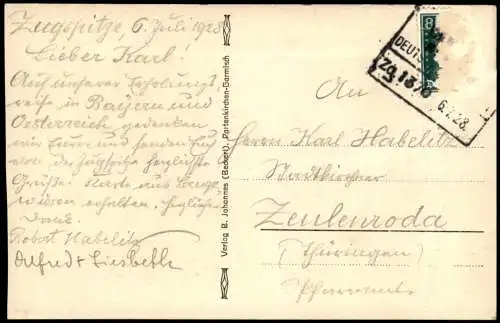 Zugspitze, 6. Juli 1928
Lieber Karl!
Auf unserer Erholungs
reise in Bayern und
Oesterreich gedenken
wir Eurer und senden Euch
von der Zugspitze herzlichste
Grüße. Karte aus
erhalten. Herzlichen
Robert Habelitz
Alfred + Liesbeth
Verlag B. Johannes (Beckert), Partenkirchen-Garmisch
8
DEUTSCH
Zg 137
6.7.28.
An
Herrn Karl Habelitz
Stadtkirchner
Zeulenroda
(Thüringen)
Pfarramt